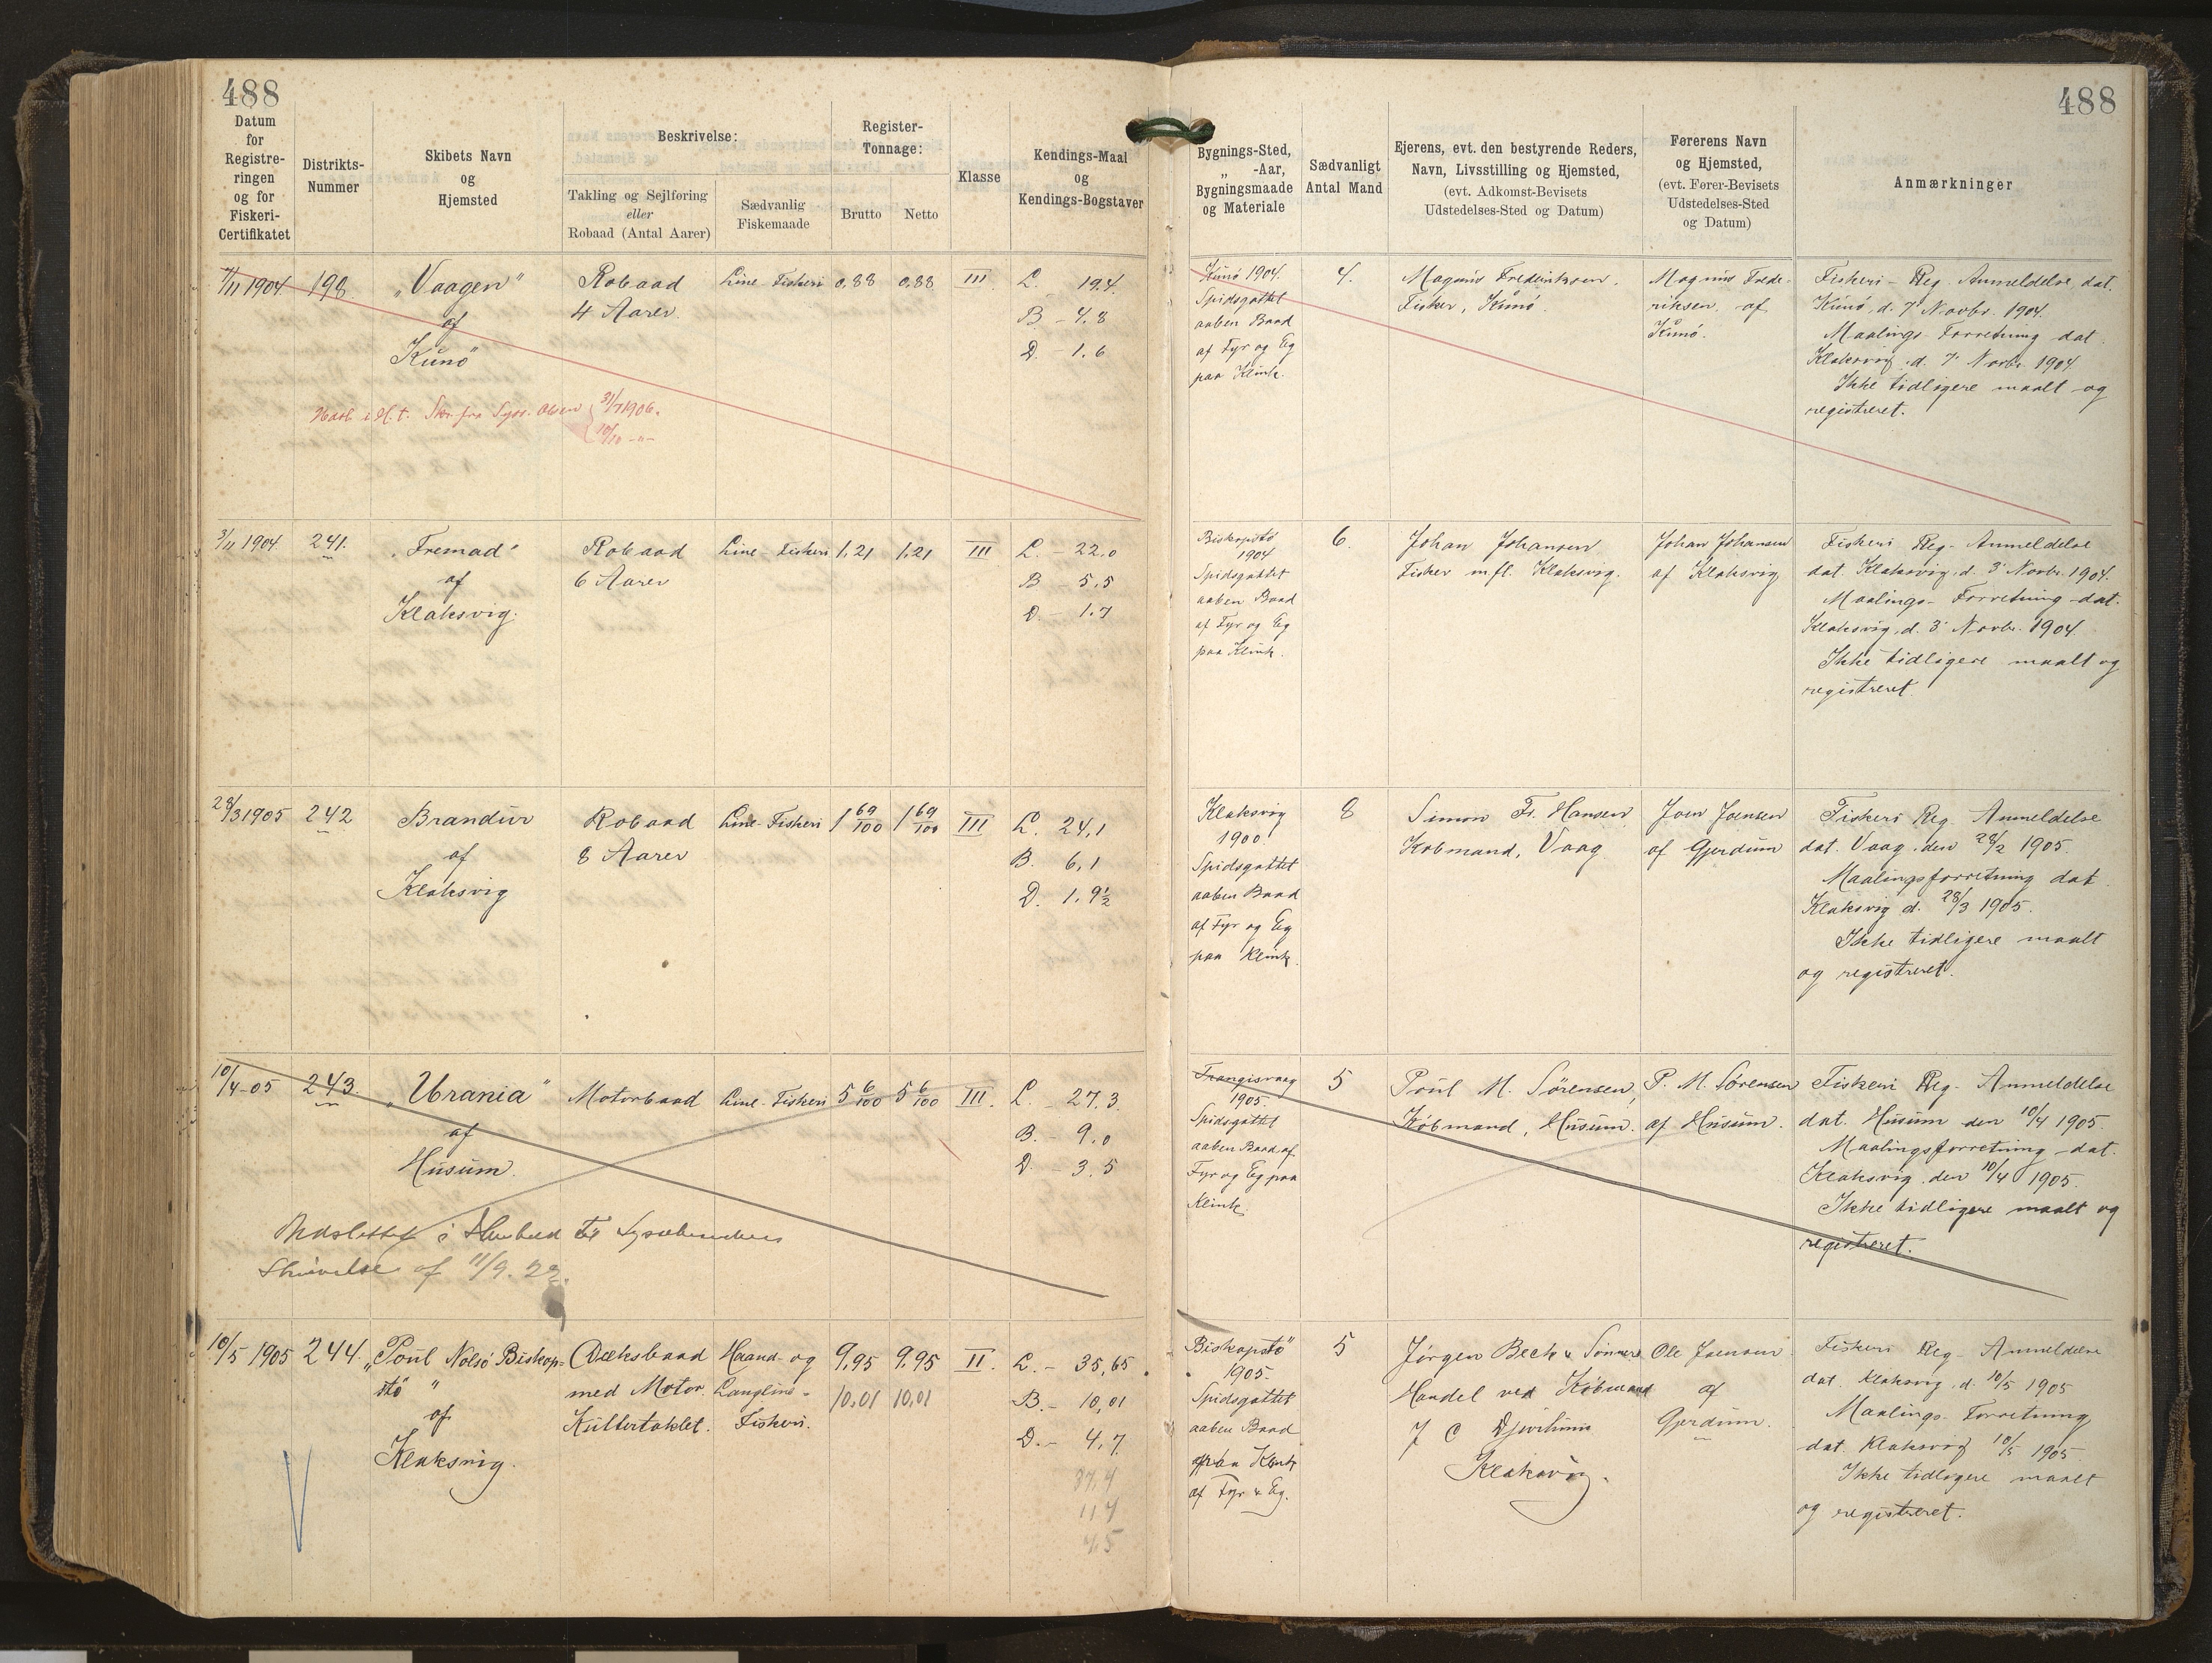 488
488
Datum
for
Registre-
ringen
og for
Fiskeri-
Certifikatet
Distrikts-
Nummer
Skibets Navn
og
Hjemsted
Beskrivelse:
Takling og Sejlføring
eller
Robaad (Antal Aarer)
Sædvanlig
Fiskemaade
Register-
Tonnage:
Brutto
Netto
Klasse
Kendings-Maal
og
Kendings-Bogstaver
Bygnings-Sted,
„ -Aar,
Bygningsmaade
og Materiale
Sædvanligt
Antal Mand
Ejerens, evt. den bestyrende Reders,
Navn, Livsstilling og Hjemsted,
(evt. Adkomst-Bevisets
Udstedelses-Sted og Datum)
Førerens Navn
og Hjemsted,
(evt. Fører-Bevisets
Udstedelses-Sted
og Datum)
Anmærkninger
7/11 1904
198
„Vaagen"
af
Kunö"
Robaad
4 Aarer.
Line-Fiskeri
0,88
0,88
III
L. 19.4.
B - 4.8
D. - 1.6
Kunö 1904.
Spidsgattet
aaben Baad
af Fyr og Eg
paa Klink.
4.
Magnus Frederiksen.
Fisker, Kunö.
Magnus Frede-
riksen, af
Kunö.
Fiskeri-Reg. Anmeldelse, dat.
Kunö, d. 7' Novbr. 1904.
Maalings Forretning dat.
Klaksvig, d. 7' Novbr. 1904
Ikke tidligere maalt og
registreret.
31/7 1906.
10/10 -"-
3/11 1904.
241.
„Fremad"
af
Klaksvig.
Robaad
6 Aarer
Line Fiskeri
1,21
1,21
III
L. - 22,0
B 5,5
D. - 1.7
Biskopstö
1904
Spidsgattet
aaben Baad
af Fyr og Eg
paa Klink.
6.
Johan Johansen
Fisker m fl. Klaksvig.
Johan Johansen
af Klaksvig
Fiskeri Reg- Anmeldelse
dat. Klaksvig, d. 3' Novbr. 1904.
Maalings- Forretning dat.
Klaksvig, d. 3' Novbr. 1904.
Ikke tidligere maalt og
registreret.
28/3 1905
242
Brandur
af
Klaksvig
Robaad
8 Aarer
Line-Fiskeri
1 69/100
1 69/100
III
L. 24,1
B. 6,1
D. 1. 9½
Klaksvig
1900.
Spidsgattet
aaben Baad
af Fyr og Eg
paa Klink.
8
Simon Fr. Hansen
Kobmand, Vaag
Joen Joensen
af Gjerdum
Fiskeri Reg. Anmeldelse
dat. Vaag, den 28/2 1905.
Maalingsforretning dat.
Klaksvig d. 28/3 1905.
Ikke tidligere maalt
og registreret.
10/4-05
243.
„Urania"
af
Husum.
Motorbaad
Line-Fiskeri
5 6/100
5 6/100
III.
L. - 27,3
B. - 9,0
D. - 3,5
Udslettet i Henhold til Sysselmandens
Skrivelse af 11/9. 22.
Trangisvaag
1905.
Spidsgattet
aaben Baad af
Fyr og Eg paa
Klink.
5
Poul M. Sørensen,
Købmand, Husum.
P. M. Sørensen
af Husum.
Fiskeri Reg- Anmeldelse
dat. Husum den 10/4 1905.
Maalingsforretning dat.
Klaksvig, den 10/4 1905.
Ikke tidligere maalt og
registreret.
10/5 1905
244.
„Poul Nolsö Biskop-
stö "
af
Klaksvig.
Dæksbaad
med Motor.
Kuttertaklet.
Haand- og
Langline-
Fiskeri.
9,95
9,95
10,01
10,01
II
L. - 35,65
B. - 10,01
D. - 4,7
37,4
11 4
4,5
Biskopstö"
1905.
Spidsgattet
aaben Baad
paa Klink
af Fyr & Eg.
5
Jørgen Beck & Sönners
Handel ved Købmand
J C Djurhuus
Klaksvig.
Ole Joensen
af
Gjerdum.
Fiskeri Reg- Anmeldelse
dat. Klaksvig, d. 10/5 1905
Maalings- Forretning
dat. Klaksvig 10/5 1905
Ikke tidligere maalt
og registreret.